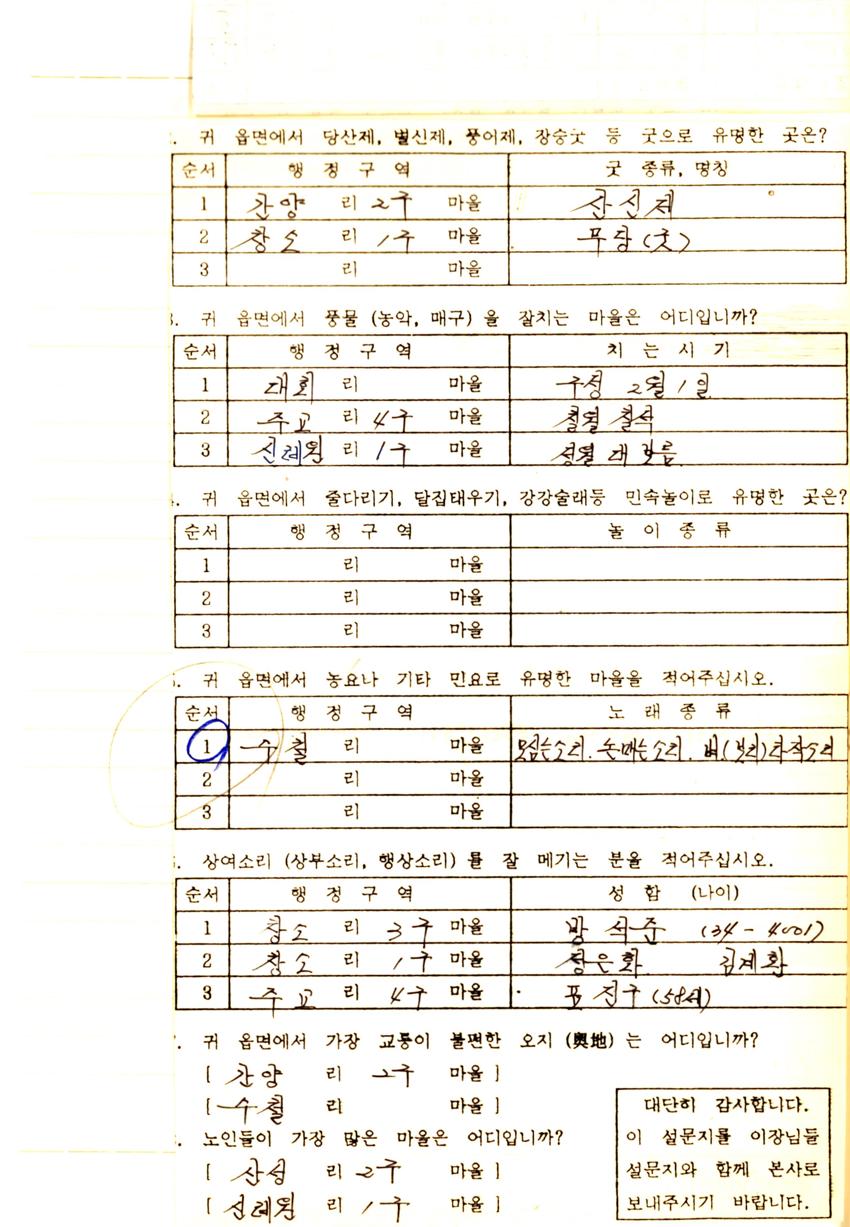 . 귀 읍면에서 당산제, 별신제, 풍어제, 장승굿 등 굿으로 유명한 곳은?
순서 행 정 구 역 굿 종류, 명칭
1 간양 리 2구 마을 산신제
2 창소 리 1구 마을 무당(굿)
3 리 마을
3. 귀 읍면에서 풍물 (농악, 매구) 을 잘치는 마을은 어디입니까?
순서 행 정 구 역 치 는 시 기
1 대회 리 마을 구정 2월 1일
2 주교 리 4구 마을 칠월 칠석
3 신례원 리 1구 마을 정월 대보름
. 귀 읍면에서 줄다리기, 달집태우기, 강강술래등 민속놀이로 유명한 곳은?
순서 행 정 구 역 놀 이 종 류
1 리 마을
2 리 마을
3 리 마을
. 귀 읍면에서 농요나 기타 민요로 유명한 마을을 적어주십시오.
순서 행 정 구 역 노 래 종 류
1 수철 리 마을 모심는소리. 논매는소리. 벼(보리)타작소리
2 리 마을
3 리 마을
. 상여소리 (상부소리, 행상소리) 를 잘 메기는 분을 적어주십시오.
순서 행 정 구 역 성 함 (나이)
1 창소 리 3구 마을 방석준 (34-4001)
2 창소 리 1구 마을 장은화 김제환
3 주교 리 4구 마을 표진구 (58세)
. 귀 읍면에서 가장 교통이 불편한 오지 (奧地) 는 어디입니까?
[ 간양 리 2구 마을 ]
[ 수철 리 마을 ]
. 노인들이 가장 많은 마을은 어디입니까?
[ 산성 리 2구 마을 ]
[ 신례원 리 1구 마을 ]
대단히 감사합니다.
이 설문지를 이장님들
설문지와 함께 본사로
보내주시기 바랍니다.